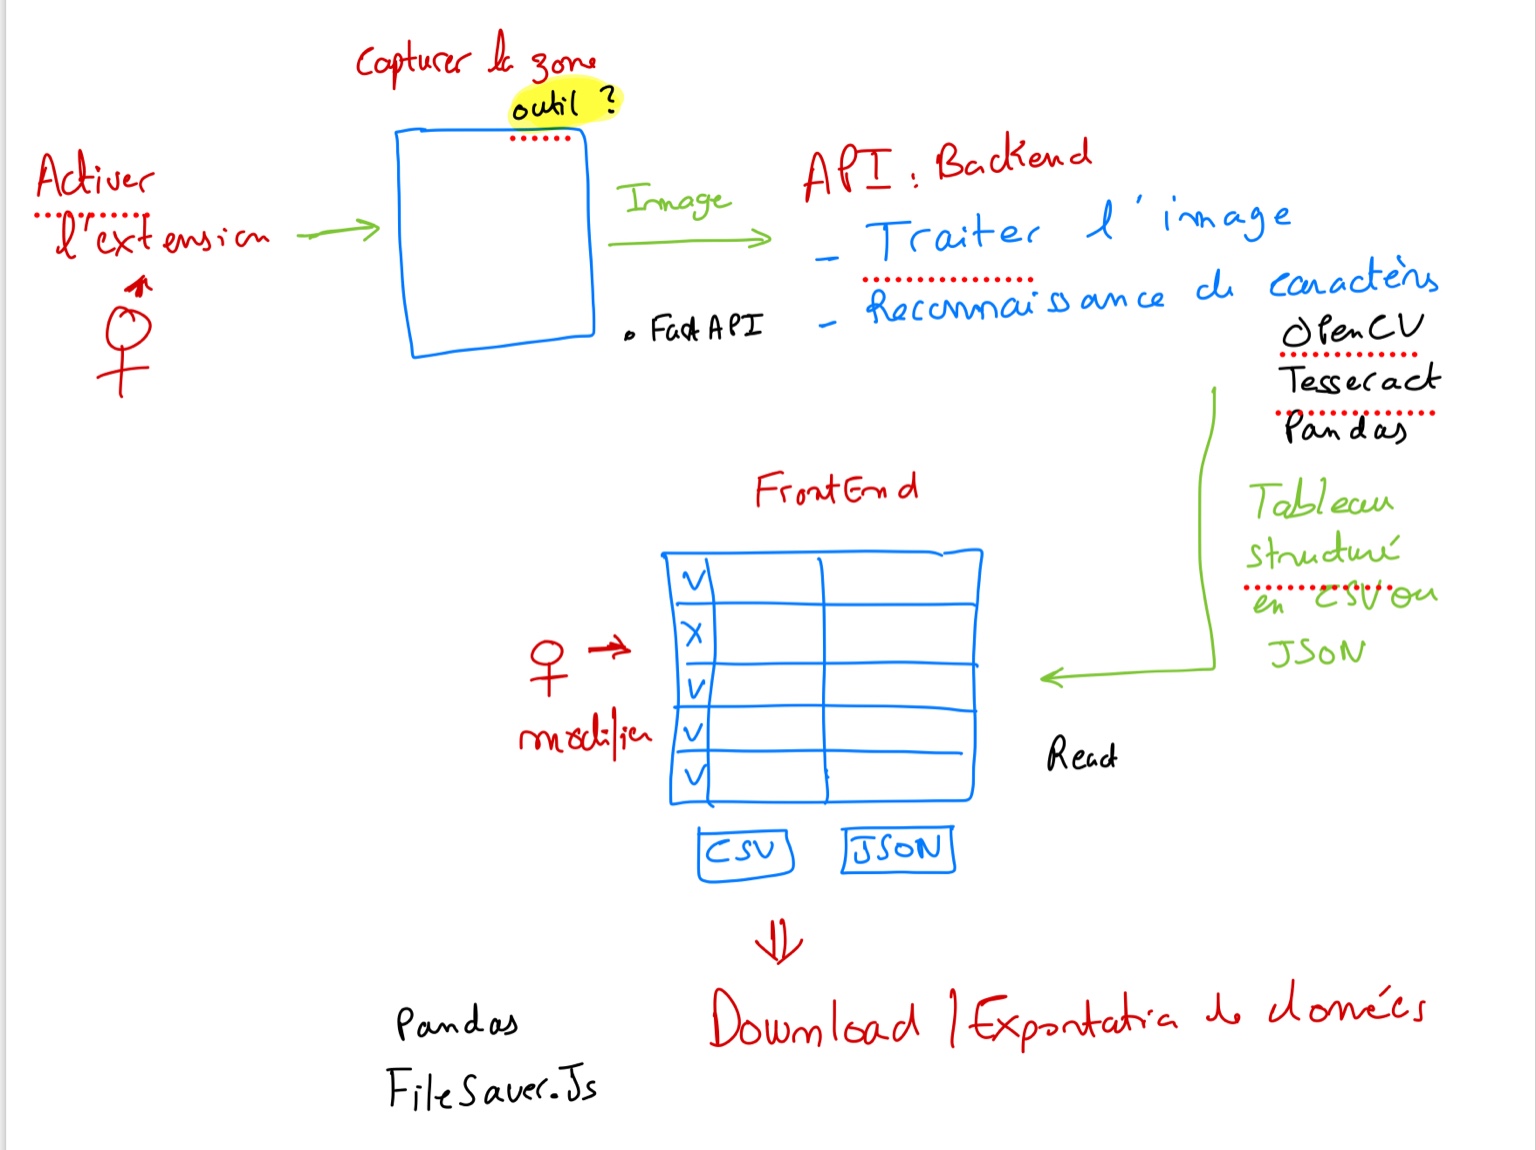 Capturer la zone
outil ?
Activer
l'extension
Image
API : Backend
- Traiter l'image
- Reconnaissance de caractèrs
• FastAPI
OpenCV
Tesseract
Pandas
Tableau
structuré
en CSV ou
JSON
FrontEnd
V
X
V
V
V
modifier
React
CSV
JSON
Download / Exportation de données
Pandas
FileSaver.Js